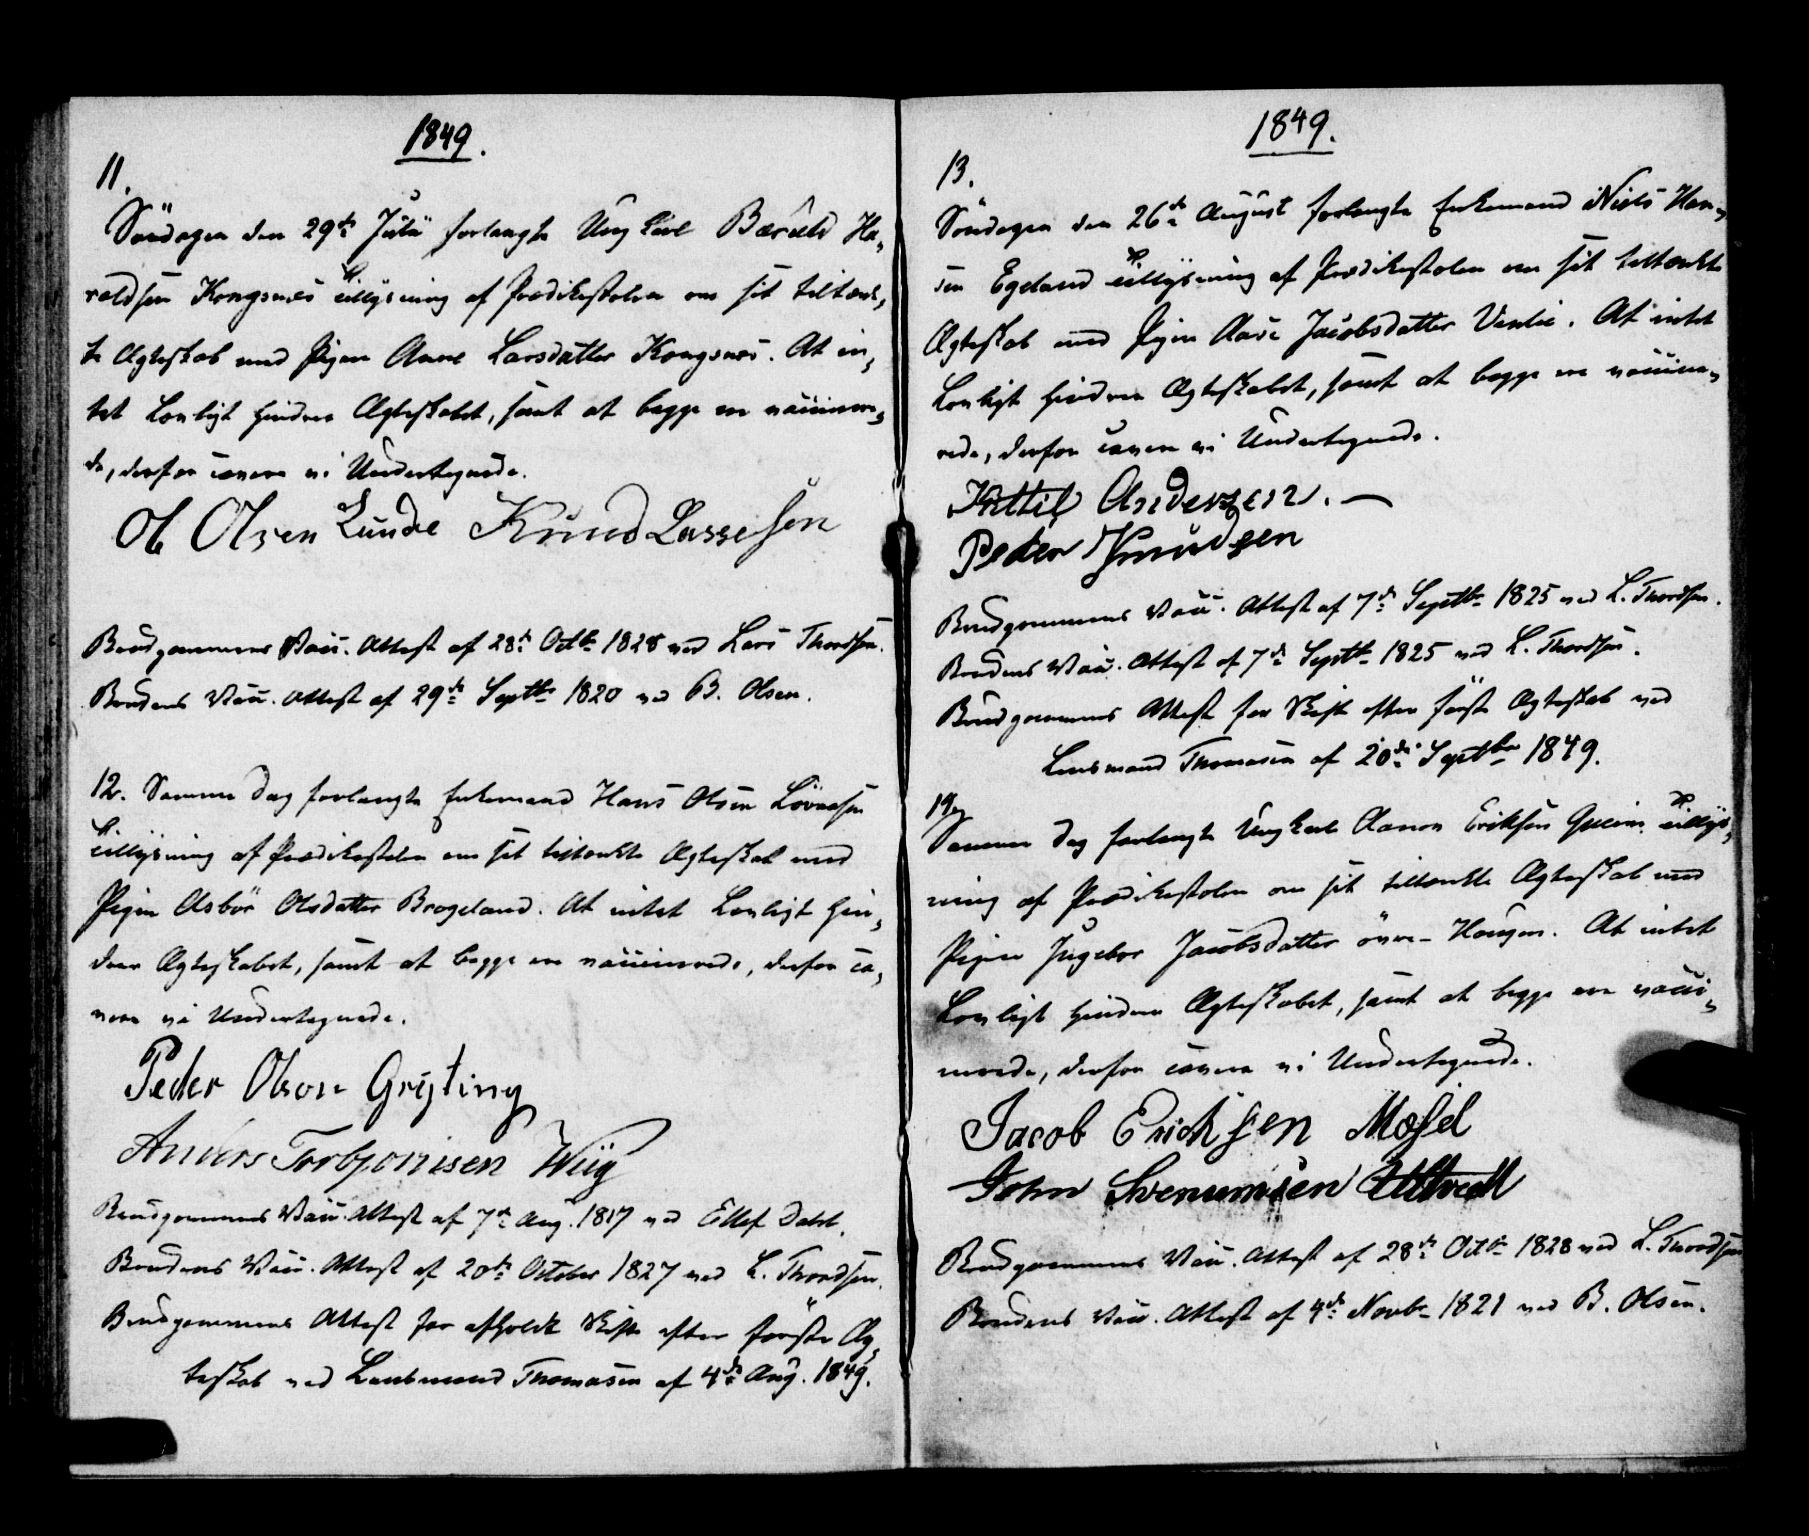 1849.
11.
Søndagen den 29de Julii forlangte Ungkarl Bærulv Ha-
raldsen Kongsnes tillysning af Prædikestolen om sit tiltænk-
te Ægteskab med Pigen Anne Larsdatter Kongsnes. At in-
tet Lovligt hindrer Ægteskabet, samt at begge ere vaccinere-
de, derfor cavere vi Undertegnede.
Ol Olsen Lunde Knud Lassesen
Brudgommens Vacc. Attest af 28de Octbr 1828 ved Lars Thordsen.
Brudens Vacc. Attest af 29de Septbr 1820 ved B. Olsen.
12. Samme Dag forlangte Enkemand Hans Olsen Løvaasen
tillysning af Prædikestolen om sit tiltænkte Ægteskab med
Pigen Asbør Olsdatter Brogeland. At intet Lovligt hin-
drer Ægteskabet, samt at begge ere vaccinerede, derfor ca-
vere vi Undertegnede.
Peder Olson Gryting
Anders Torbjonisen Wiig
Brudgommens Vacc. Attest af 7de Aug. 1817 ved Ellef Dahl.
Brudens Vacc. Attest af 20de October 1827 ved L. Thordsen.
Brudgommens Attest for afholdt Skifte efter første Æg-
teskab ved Lensmand Thomasen af 4de Aug. 1849.
1849.
13.
Søndagen den 26de August forlangte Enkemand Niels Han-
sen Egeland tillysning af Prædikestolen om sit tiltænkte
Ægteskab med Pigen Aase Jacobsdatter Venlie. At intet
Lovligt hindrer Ægteskabet, samt at begge ere vaccine-
rede, derfor cavere vi Undertegnede.
Kittil Andersen.
Peder Knudsen
Brudgommens Vacc. Attest af 7de Septbr 1825 ved L. Thordsen.
Brudens Vacc. Attest af 7de Septbr 1825 ved L. Thordsen.
Brudgommens Attest for Skifte efter første Ægteskab ved
Lensmand Thomasen af 20de Septbr 1849.
14.
Samme Dag forlangte Ungkarl Aanon Eriksen tillys-
ning af Prædikestolen om sit tiltænkte Ægteskab med
Pigen Ingebor Jacobsdatter øvre-Haugen. At intet
Lovligt hindrer Ægteskabet, samt at begge ere vacci-
nerede, derfor cavere vi Undertegnede.
Jacob Erichsen Mosel
John Svenumsen
Brudgommens Vacc. Attest af 28de Octbr 1828 ved L. Thordsen
Brudens Vacc. Attest af 4de Novbr 1821 ved B. Olsen.